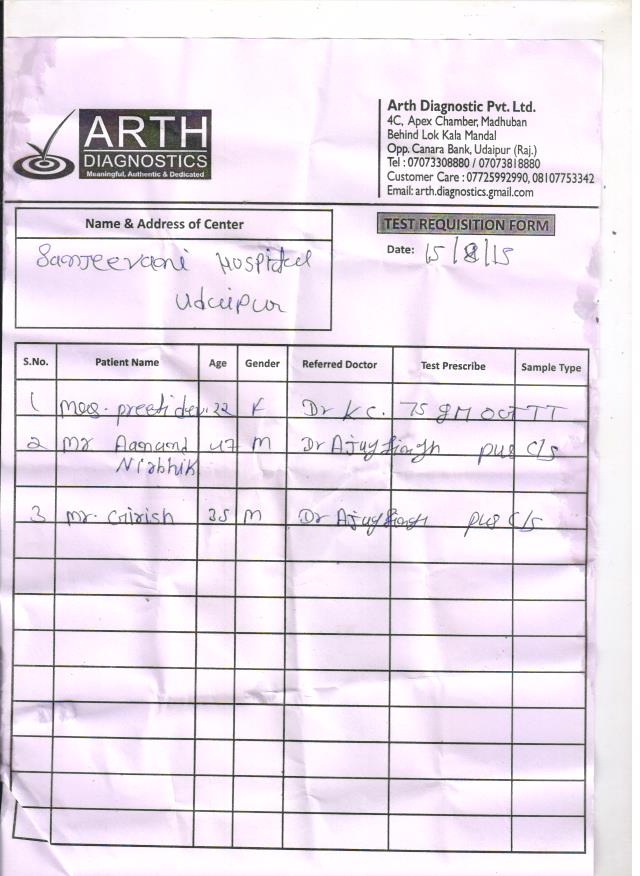 ARTH
DIAGNOSTICS
Meaningful, Authentic & Dedicated
Arth Diagnostic Pvt. Ltd.
4C, Apex Chamber, Madhuban
Behind Lok Kala Mandal
Opp. Canara Bank, Udaipur (Raj.)
Tel : 07073308880 / 07073818880
Customer Care : 07725992990, 08107753342
Email: arth.diagnostics.gmail.com
Name & Address of Center
Sanjeevani Hospital
Udaipur
TEST REQUISITION FORM
Date: 15/8/15
S.No. Patient Name Age Gender Referred Doctor Test Prescribe Sample Type
1 preeti devi 22 F Dr K C. 75 gm OGTT
2 Mr Aanand 47 M Dr Ajay Singh pus C/s
Nirbhik
3 Mr. Girish 35 M Dr Ajay Singh pus C/s